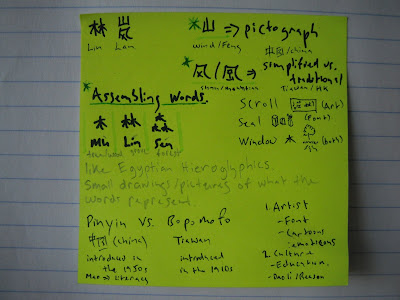 林 嵐
Lin Lan
山 => pictograph
Wind/Feng
中国/china
* 风/風 => simplified vs.
traditional
Taiwan/HK
* Assembling Words.
木 林 森
Mu Lin Sen
forest
Scroll (Art)
Seal (Font)
Window 木 (both)
like Egyptian Hieroglyphics.
Small drawings/pictures of what the
words represent.
Pinyin vs. Bopomofo
中国 (china) Taiwan
introduced in
the 1950s
Mao => Literacy
introduced
in the 1910s
1. Artist
- Font
- Cartoons
emoticons
2. Culture
- Education